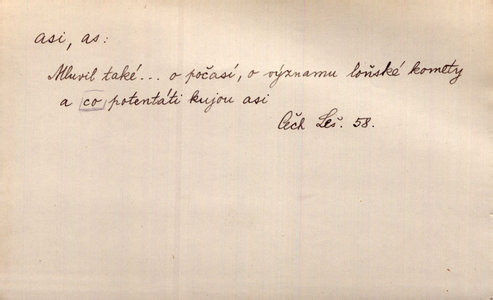 asi, as:
Mluvil také... o počasí, o významu loňské komety
a co potentáti kujou asi
Čch Leš. 58.